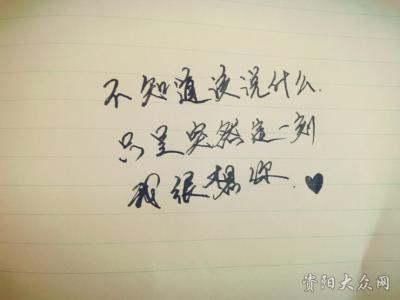 不知道该说什么.
只是突然这一刻
我很想你.
资阳大众网